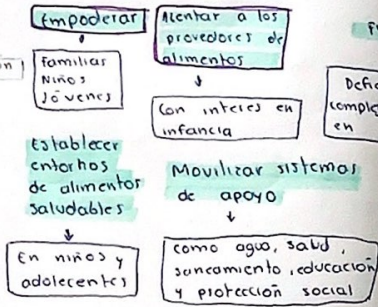 Empoderar
Familias
Niños
Jóvenes
Alentar a los
proveedores de
alimentos
Con interes en
infancia
Establecer
entornos
de alimentos
saludables
En niños y
adolecentes
Movilizar sistemas
de apoyo
como agua, salud,
saneamiento, educación
y protección social
en